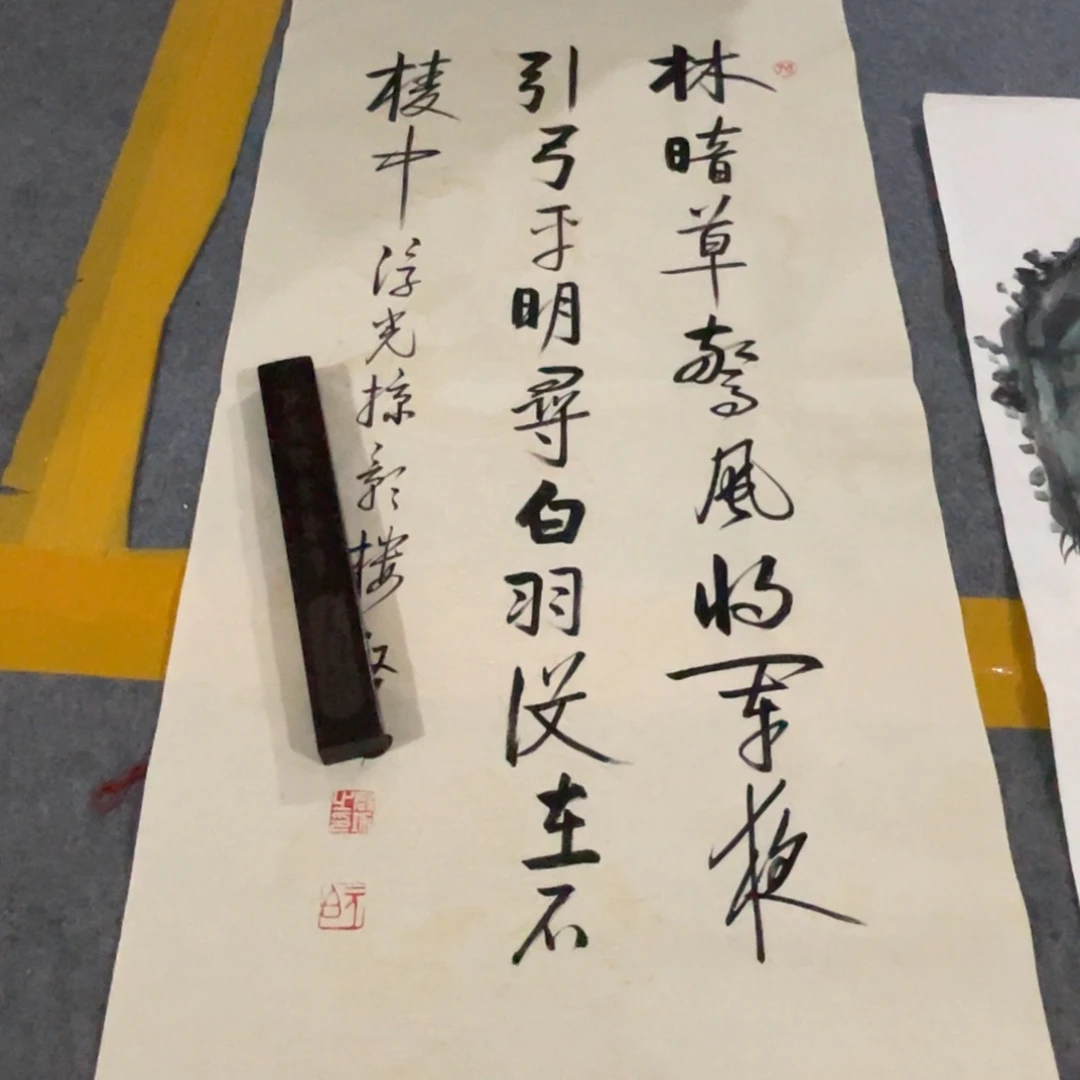 林暗草驚風将军夜
引弓平明尋白羽没在石
棱中 浮光掠影楼